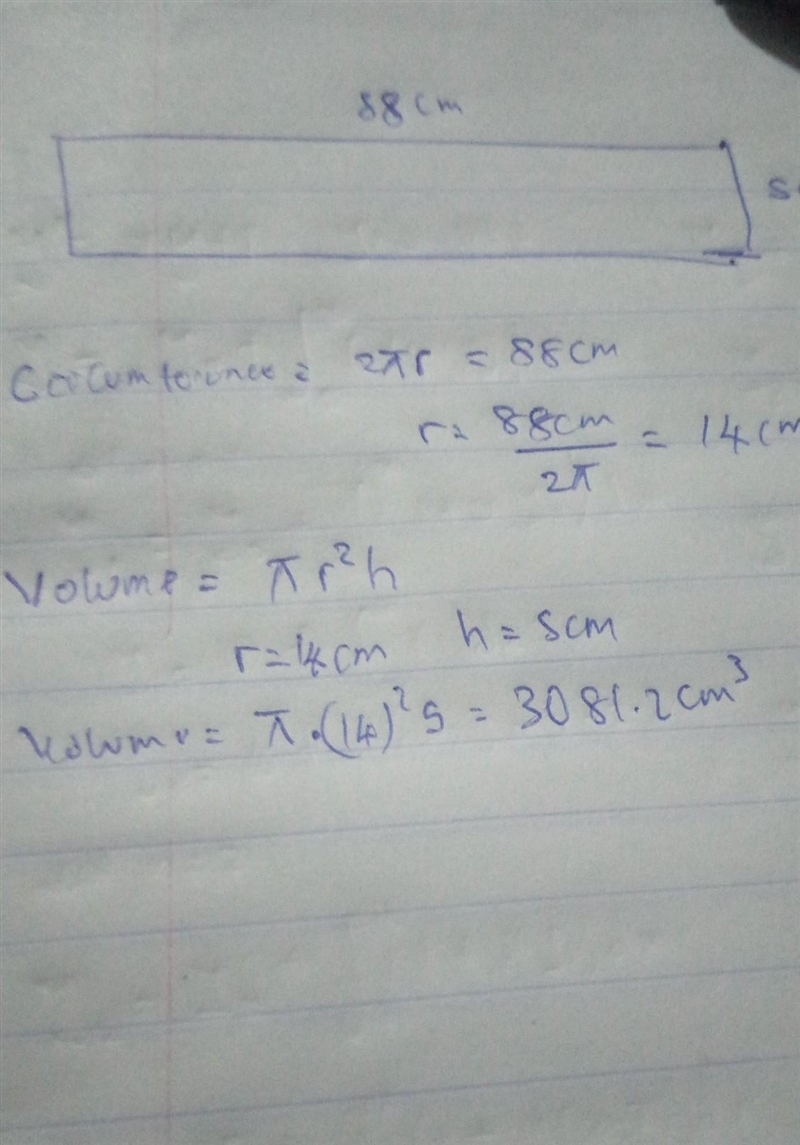 88cm
5
Circumference = 2πr = 88cm
r = 88cm / 2π = 14cm
Volume = πr²h
r = 14cm h = 5cm
Volume = π.(14)²5 = 3081.2cm³